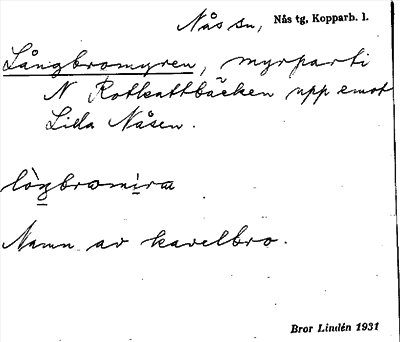 Nås sn, Nås tg, Kopparb. l.
Långbromyren, myrparti
N Rotkattbäcken upp emot
Lida Nåsen.
lògbromira
Namn av kavelbro.
Bror Lindén 1931